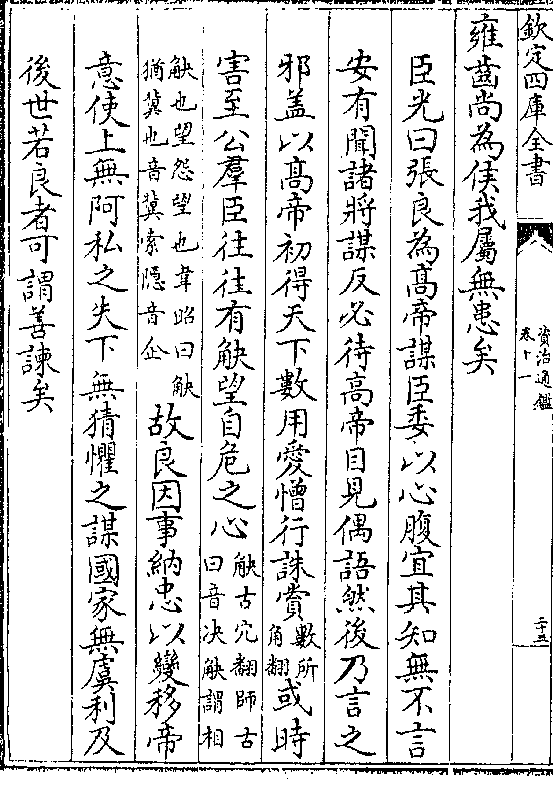 欽定四庫全書
資治通鑑
卷十一
二十五
雍齒尚為侯我屬無患矣
臣光曰張良為髙帝謀臣委以心腹宜其知無不言
安有聞諸將謀反必待高帝目見偶語然後乃言之
邪盖以髙帝初得天下數用愛憎行誅賞數所角翻或時
害至公羣臣往往有觖望自危之心觖古穴翻師古曰音决觖謂相
觖也望怨望也韋昭曰觖猶冀也音冀索隠音企故良因事納忠以變移帝
意使上無阿私之失下無猜懼之謀國家無虞利及
後世若良者可謂善諫矣